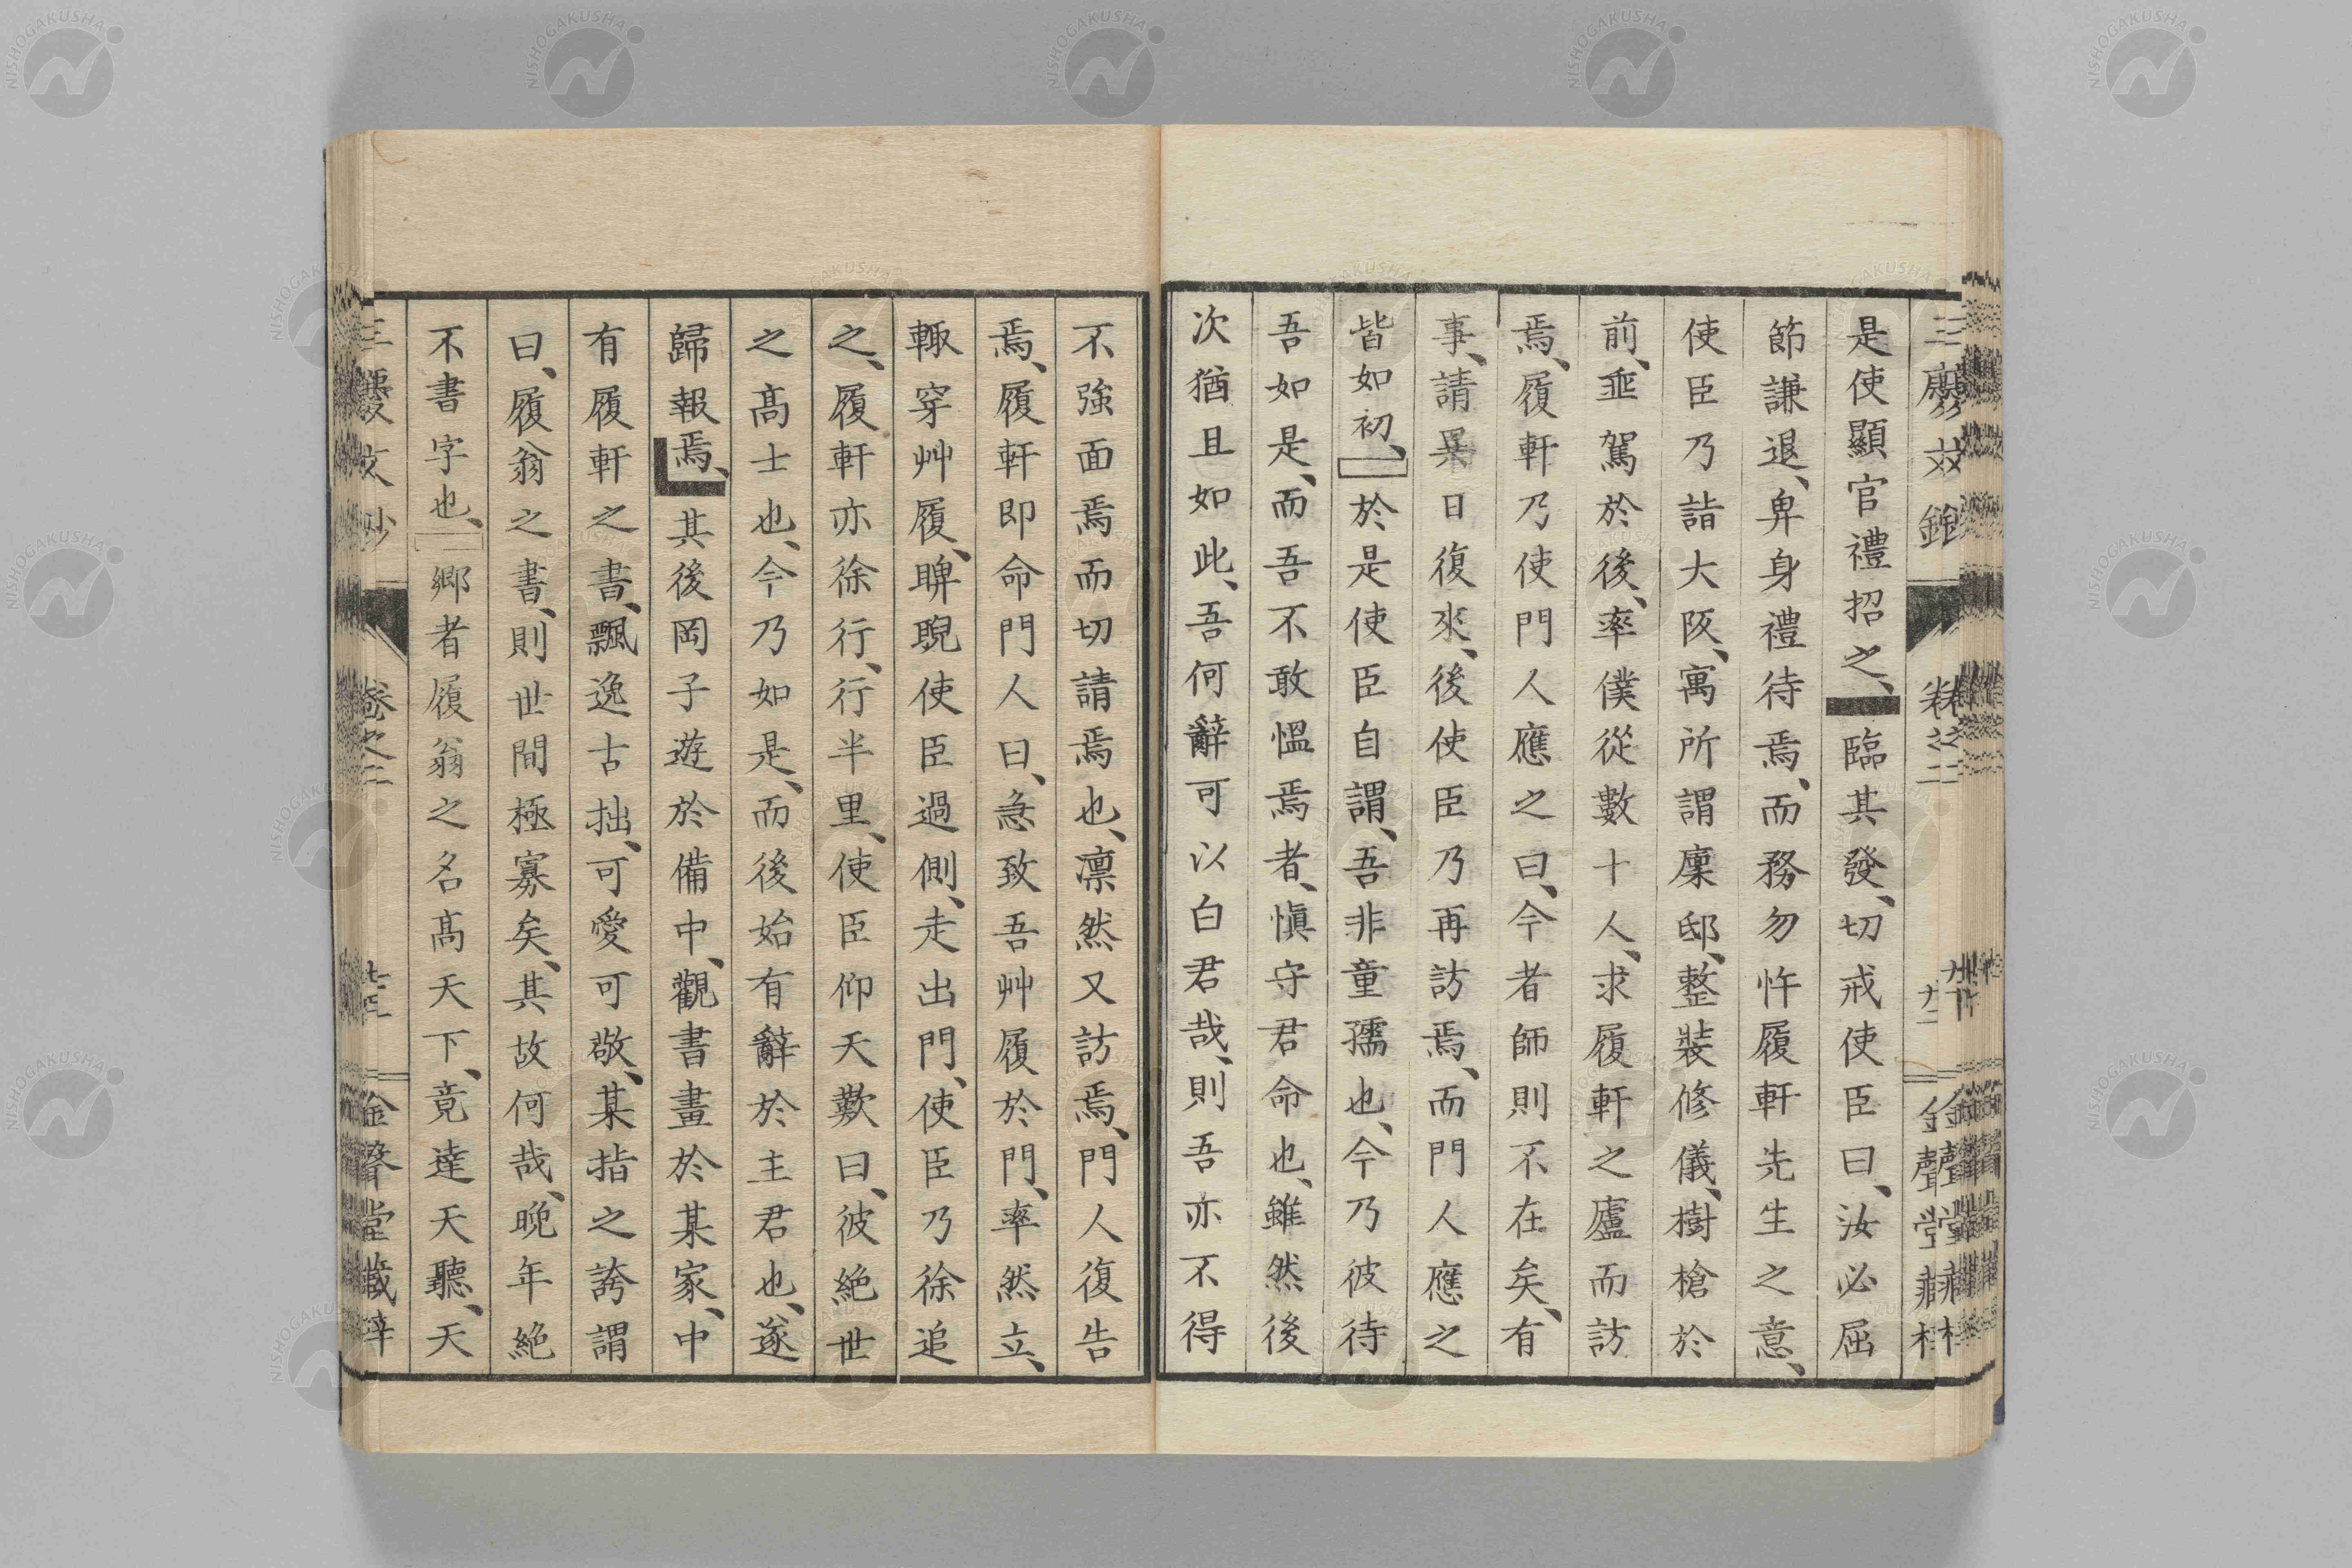 是使顯官禮招之、臨其發、切戒使臣曰、汝必屈
節謙退、卑身禮待焉、而務勿忤履軒先生之意、
使臣乃詣大阪、寓所謂廩邸、整裝修儀、樹槍於
前、垂駕於後、率僕從數十人、求履軒之廬而訪
焉、履軒乃使門人應之曰、今者師則不在矣、有
事、請異日復來、後使臣乃再訪焉、而門人應之
皆如初、於是使臣自謂、吾非童孺也、今乃彼待
吾如是、而吾不敢慍焉者、愼守君命也、雖然後
次猶且如此、吾何辭可以白君哉、則吾亦不得
不強面焉而切請焉也、凛然又訪焉、門人復告
焉、履軒即命門人曰、急致吾艸履於門、率然立、
輙穿艸履、睥睨使臣過側、走出門、使臣乃徐追
之、履軒亦徐行、行半里、使臣仰天歎曰、彼絶世
之髙士也、今乃如是、而後始有辭於主君也、遂
歸報焉、其後岡子遊於備中、觀書畫於某家、中
有履軒之書、飄逸古拙、可愛可敬、某指之誇謂
曰、履翁之書、則世間極寡矣、其故何哉、晩年絶
不書字也、郷者履翁之名髙天下、竟達天聽、天
卷之二
金聲堂藏梓